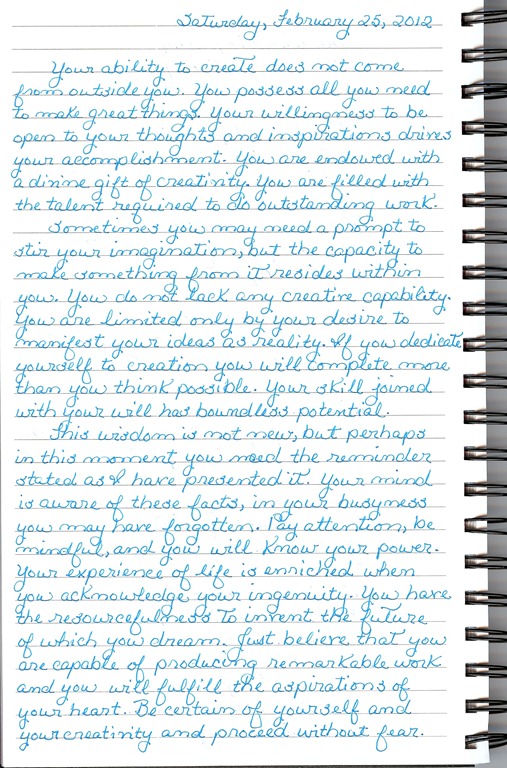 Saturday, February 25, 2012
Your ability to create does not come
from outside you. You possess all you need
to make great things. Your willingness to be
open to your thoughts and inspirations drives
your accomplishment. You are endowed with
a divine gift of creativity. You are filled with
the talent required to do outstanding work.
Sometimes you may need a prompt to
stir your imagination, but the capacity to
make something from it resides within
you. You do not lack any creative capability.
You are limited only by your desire to
manifest your ideas as reality. If you dedicate
yourself to creation you will complete more
than you think possible. Your skill joined
with your will has boundless potential.
This wisdom is not new, but perhaps
in this moment you need the reminder
stated as I have presented it. Your mind
is aware of these facts, in your busyness
you may have forgotten. Pay attention, be
mindful, and you will know your power.
Your experience of life is enriched when
you acknowledge your ingenuity. You have
the resourcefulness to invent the future
of which you dream. Just believe that you
are capable of producing remarkable work
and you will fulfill the aspirations of
your heart. Be certain of yourself and
your creativity and proceed without fear.